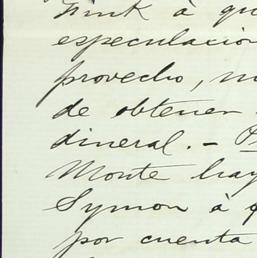 Fink à qu
especulacion
provecho, m
de obtener
dineral. — P
Monte hay
Symon à q
por cuenta